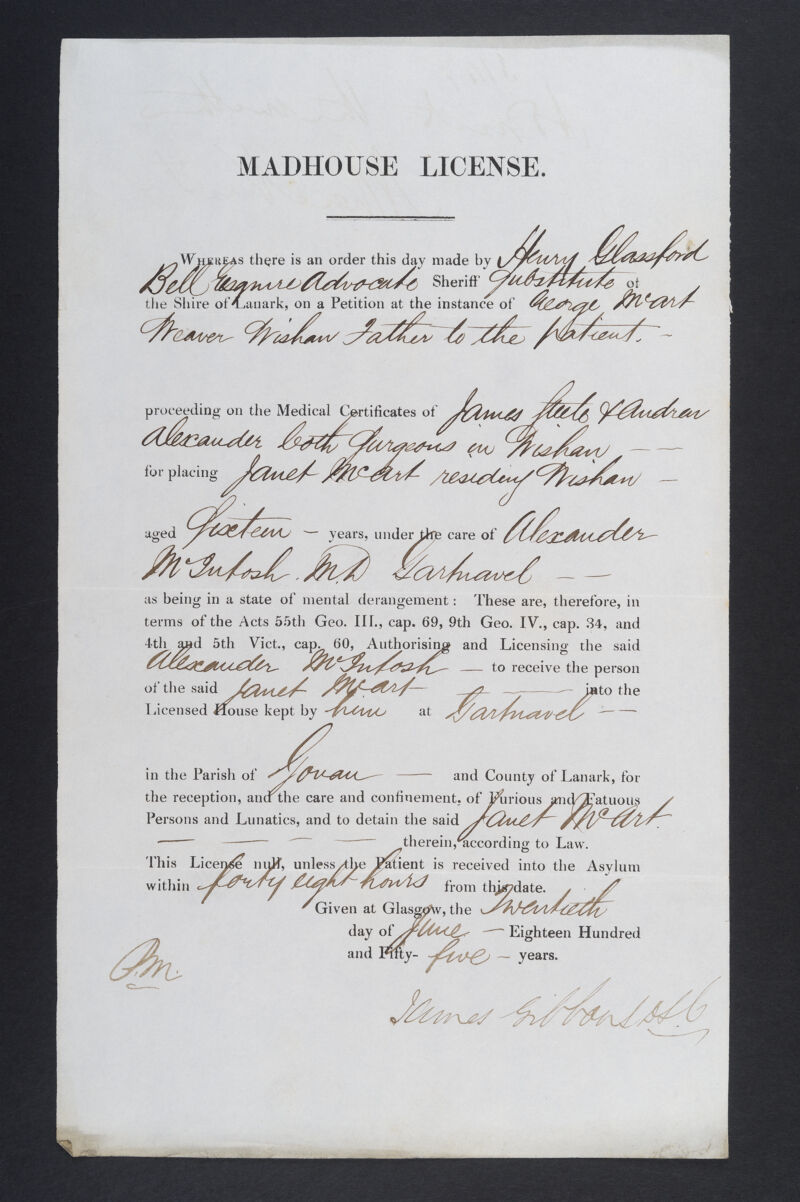 MADHOUSE LICENSE.
WHEREAS there is an order this day made by Henry Glassford
Bell Esquire Advocate Sheriff Substitute of
the Shire of Lanark, on a Petition at the instance of George McArt
Weaver Wishaw Father to the patient. –
proceeding on the Medical Certificates of James Steele & Andrew
Alexander both Surgeons in Wishaw — —
for placing Janet McArt residing Wishaw –
aged Sixteen – years, under the care of Alexander
McIntosh. M.D Gartnavel — —
as being in a state of mental derangement: These are, therefore, in
terms of the Acts 55th Geo. III., cap. 69, 9th Geo. IV., cap. 34, and
4th and 5th Vict., cap. 60, Authorising and Licensing the said
Alexander McIntosh — to receive the person
of the said Janet McArt — into the
Licensed House kept by him at Gartnavel — —
in the Parish of Govan — and County of Lanark, for
the reception, and the care and confinement, of Furious and Fatuous
Persons and Lunatics, and to detain the said Janet McArt.
— — — — — therein, according to Law.
This License null, unless the Patient is received into the Asylum
within forty eight hours from this date.
Given at Glasgow, the Twentieth
day of June — Eighteen Hundred
and Fifty- five – years.
P.M.
James Gibbons